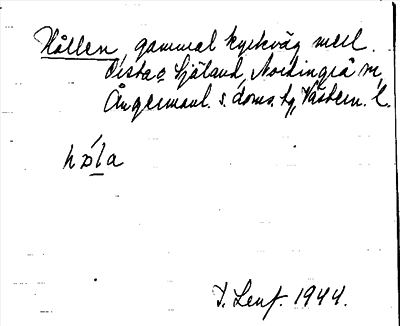 Hållen, gammal kyrkväg mell.
Östra o Själand, Nordingrå sn,
Ångermanl. s. doms. hg, Västern. l.
hòla
I. Lenf. 1944.